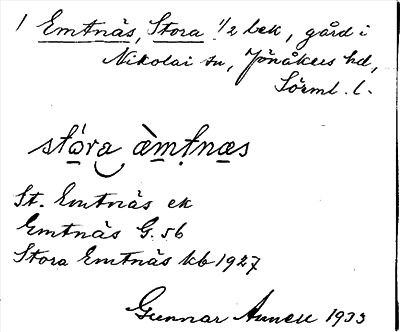 1 Emtnäs, Stora 1/2 bek, gård i
Nikolai sn, Jönåkers hd,
Sörml. l.
stó̱ra ‿ ä̀m̱tnæ̱s
St. Emtnäs ek
Emtnäs G. 56
Stora Emtnäs kb 1927
Gunnar 1933